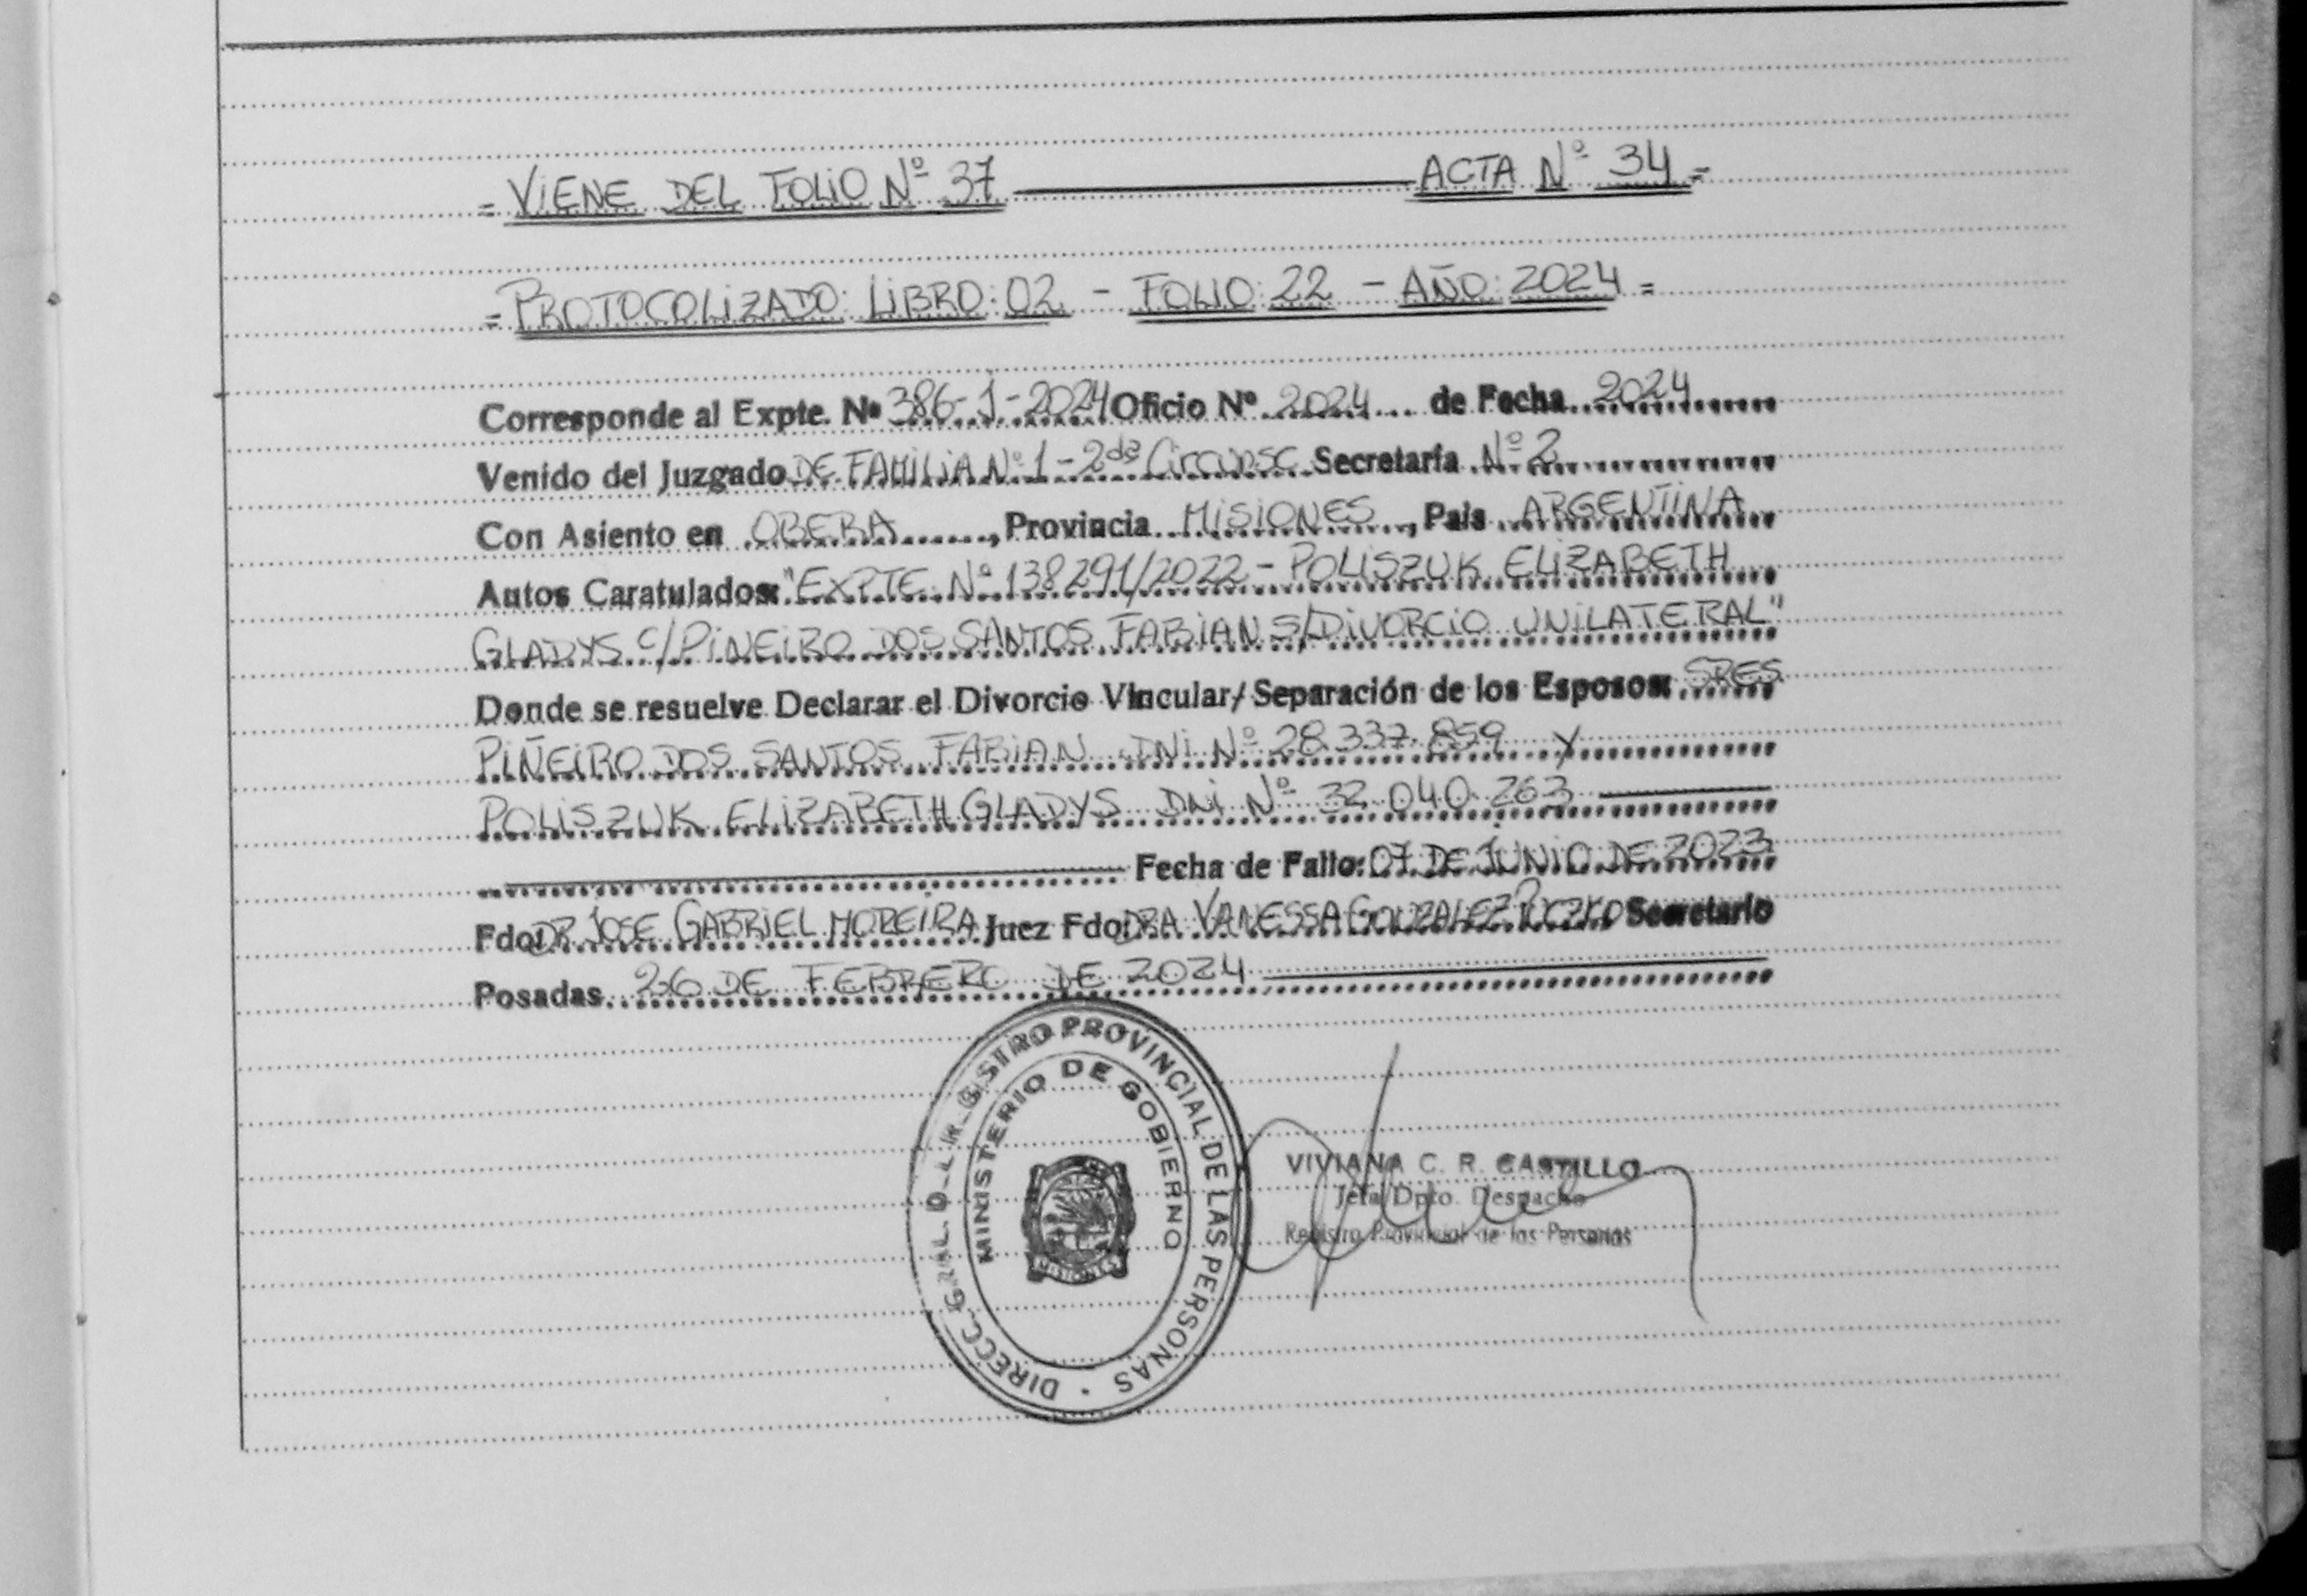 = VIENE DEL FOLIO Nº 37 ACTA Nº 34 =
= PROTOCOLIZADO: LIBRO: 02 - FOLIO: 22 - AÑO: 2024 =
Corresponde al Expte. Nº 386-1-2024 Oficio Nº 2024 de Fecha 2024
Venido del Juzgado DE FAMILIA Nº 1 - 2da Circunsc Secretaría Nº 2
Con Asiento en OBERA, Provincia MISIONES, País ARGENTINA
Autos Caratulados: "EXPTE Nº 138291/2022 - POLISZUK ELIZABETH
GLADYS C/ PIÑEIRO DOS SANTOS FABIAN S/DIVORCIO UNILATERAL"
Donde se resuelve Declarar el Divorcio Vincular/Separación de los Esposos: SRES
PIÑEIRO DOS SANTOS FABIAN DNI Nº 28.337.859 y
POLISZUK ELIZABETH GLADYS DNI Nº 32.040.263
Fecha de Fallo: 07 DE JUNIO DE 2023
Fdo: DR JOSE GABRIEL MOREIRA Juez Fdo: DRA VANESSA GONZALEZ Secretario
Posadas 26 DE FEBRERO DE 2024
DIRECC. GRAL. REGISTRO PROVINCIAL DE LAS PERSONAS
MINISTERIO DE GOBIERNO
MISIONES
VIVIANA C. R. CASTILLO
Jefa Dpto. Despacho
Registro Provincial de las Personas